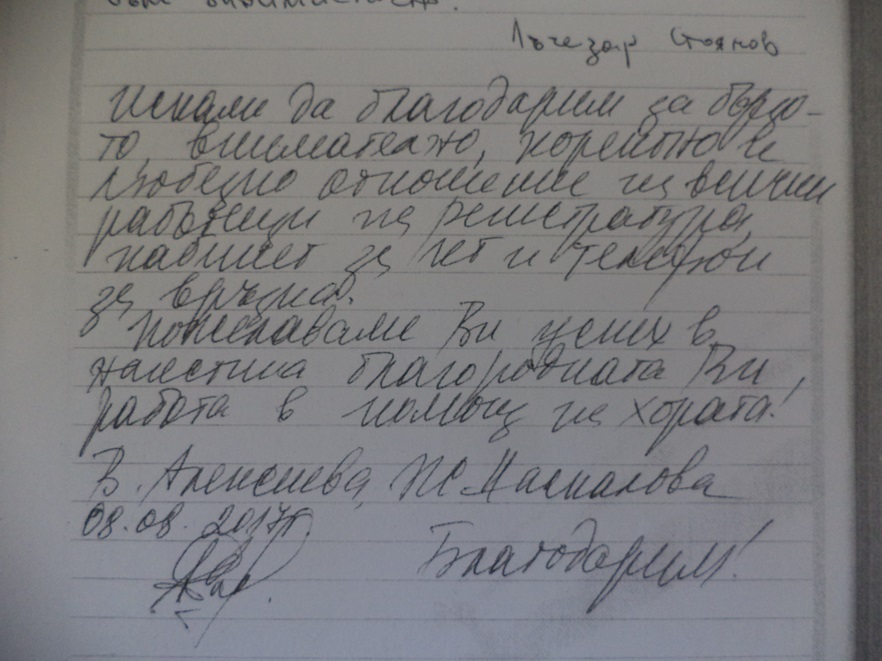 Лъчезар Стоянов
Искаме да благодарим за бързо-
то, внимателно, коректно и
любезно отношение на всички
работещи на регистратура,
кабинет за ЧЕТ и телефон
за връзка.
Пожелаваме Ви успех в
наистина благородната Ви
работа в помощ на хората!
В. Алексиева, Маскалова
08.08.2017г
Благодарим!